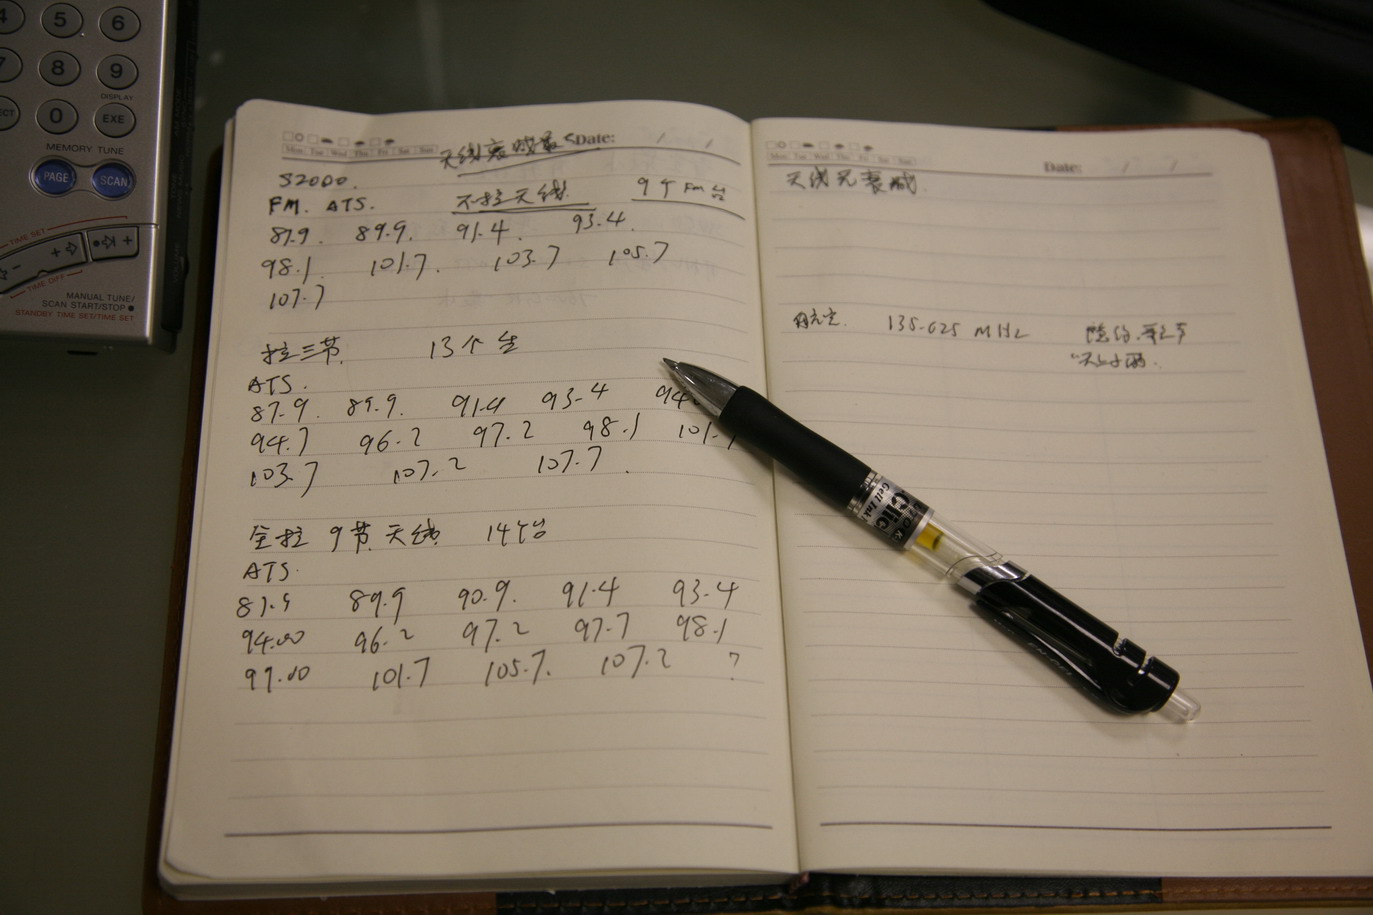 4 5 6
7 8 9
DISPLAY
0 EXE
MEMORY TUNE
PAGE SCAN
TIME SET
TIME DIFF
MANUAL TUNE/
SCAN START/STOP
STANDBY TIME SET/TIME SET
Mon Tue Wed Thu Fri Sat Sun
天线衰减最
Date: / /
S2000.
FM. ATS. 不拉天线 9个Fm台
87.9. 89.9. 91.4. 93.4.
98.1. 101.7. 103.7 105.7
107.7
拉三节. 13个台
ATS.
87.9. 89.9. 91.4 93.4 94
94.7 96.2 97.2 98.1 101.7
103.7 107.2 107.7.
全拉 9节天线 14个台
ATS.
87.9 89.9 90.9. 91.4 93.4
94.00 96.2 97.2 97.7 98.1
99.00 101.7 105.7. 107.2 ?
Mon Tue Wed Thu Fri Sat Sun
Date: / /
天线无衰减.
135.625 MHz
Clic
Gel Ink